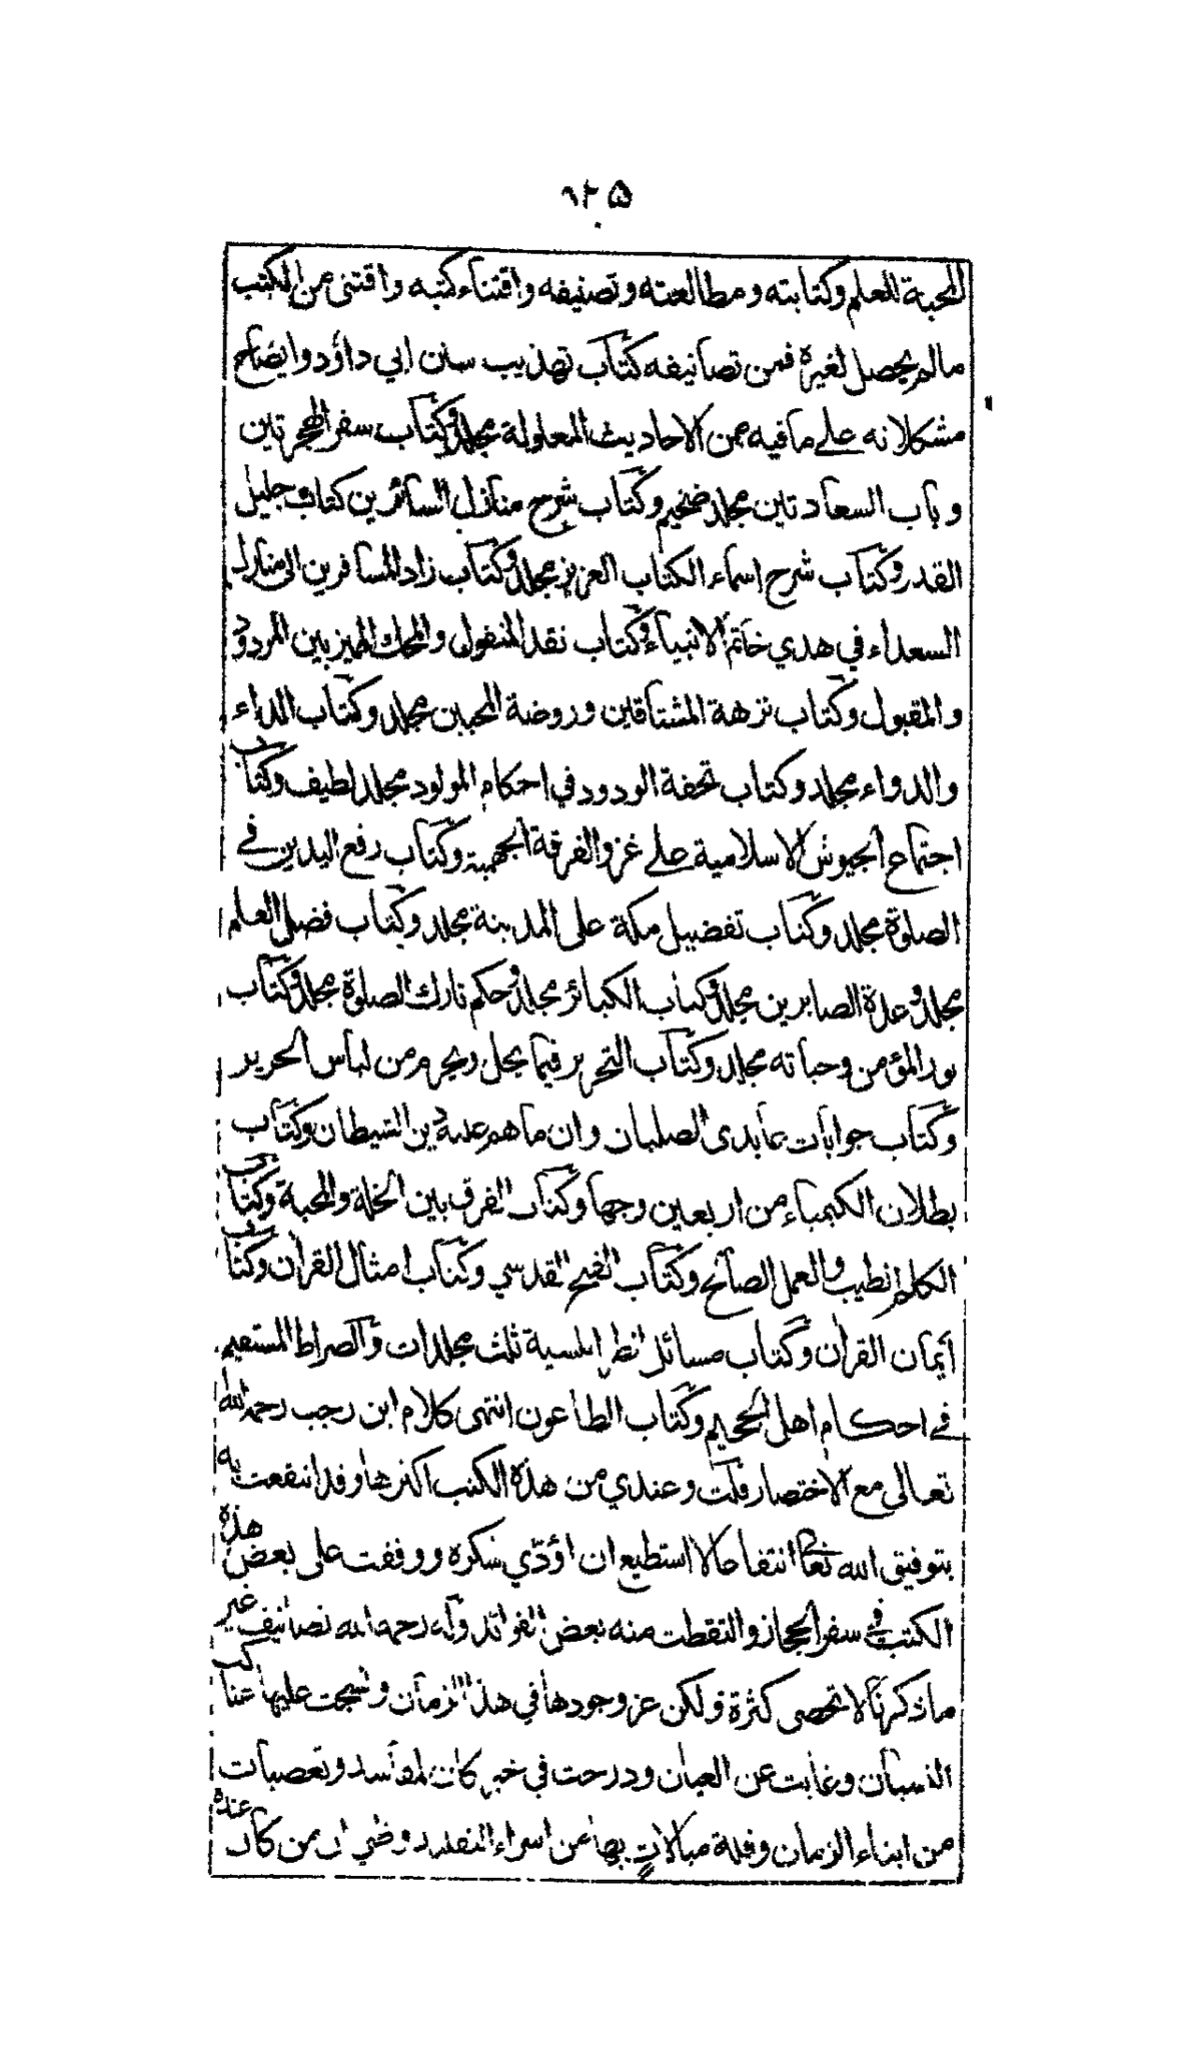 ٦٢٥
المحبة للعلم وكتابته ومطالعته وتصنيفه واقتناء كتبه واقتنى من الكتب
مالم يحصل لغيرة فمن تصانيفه كتاب تهذيب سنن ابي داؤد وايضاح
مشكلاته على ما فيه من الاحاديث المعلولة مجلد وكتاب سفر الهجرتين
وباب السعادتين مجلد ضخيم وكتاب شرح منازل السائرين كتاب جليل
القدر وكتاب شرح اسماء الكتاب العزيز مجلد وكتاب زاد المسافرين الى منازل
السعداء في هدي خاتم الانبياء وكتاب نقد المنقول والمحك المميز بين المردود
والمقبول وكتاب نزهة المشتاقين وروضة المحبين مجلد وكتاب الداء
والدواء مجلد وكتاب تحفة الودود في احكام المولود مجلد لطيف وكتاب
اجتماع الجيوش الاسلامية على غزو الفرقة الجهمية وكتاب رفع اليدين في
الصلوة مجلد وكتاب تفضيل مكة على المدينة مجلد وكتاب فضل العلم
مجلد وعدة الصابرين مجلد وكتاب الكبائر مجلد وحكم تارك الصلوة مجلد وكتاب
نور المؤمن وحياته مجلد وكتاب التحرير فيما يحل ويحرم من لباس الحرير
وكتاب جوابات عابدى الصلبان وان ما هم عليه دين الشيطان وكتاب
بطلان الكيمياء من اربعين وجها وكتاب الفرق بين الخلة والمحبة وكتاب
الكلم الطيب والعمل الصالح وكتاب الفتح القدسي وكتاب امثال القرأن وكتاب
أيمان القرأن وكتاب مسائل ثلث مجلدات والصراط المستقيم
في احكام اهل الجحيم وكتاب الطاعون انتهى كلام ابن رجب رحمه الله
تعالى مع الاختصار قلت وعندي من هذه الكتب اكثرها وقد انتفعت به
بتوفيق الله تعالى انتفاعا لا استطيع ان اؤدي شكره ووقفت على بعض هذه
الكتب في سفر الحجاز والتقطت منه بعض الفوائد وله رحمه الله تصانيف غير
ماذكرنا لا تحصى كثرة ولكن عز وجودها في هذا الزمان ونسجت عليها عناكب
النسيان وغابت عن العيان ودرجت في خبر كان لمفاسد وتعصبات
من ابناء الزمان وقلة مبالات بها من اسراء التقليد وظني ان من كان عنده